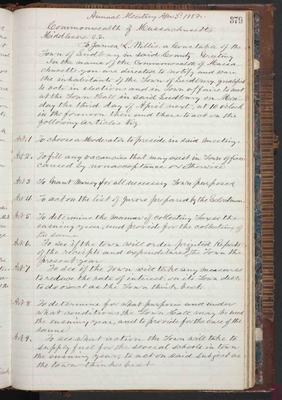 Annual Meeting Apr. 3d 1882.
379
Commonwealth of Massachusetts
Middlesex S.S.
To James L. Willis a Constable of the
Town of Sudbury in said County Greeting
In the name of the Commonwealth of Massa
chusetts you are directed to notify and warn
the inhabitants of the Town of Sudbury, qualified
to vote in elections and in Town affairs to meet
at the Town Hall in said Sudbury on Mon-
day the third day of April next, at 10 o'clock
in the forenoon then and there to act on the
following articles viz
Art. 1 To choose a Moderator to preside in said meeting.
Art. 2. To fill any vacancies that may exist in Town offices
caused by nonacceptance or otherwise
Art. 3 To Grant Money for all necessary Town purposes
Art. 4 To act on the list of Jurors prepared by the Selectmen
Art. 5 To determine the manner of collecting Taxes the
ensuing year, and provide for the collecting of
the same
Art. 6. To see if the town will order printed Reports
of the receipts and expenditures of the Town the
present year
Art. 7 To see if the Town will take any measures
to reduce the rate of interest on its Town debt
to do or act as the Town think best
Art. 8 To determine for what purpose and under
what conditions the Town Hall may be used
the ensuing year, and to provide for the care of the
same
Art. 9. To see what action the Town will take to
supply fuel for the several schools in town
the ensuing year, to act on said subject as
the town thinks best